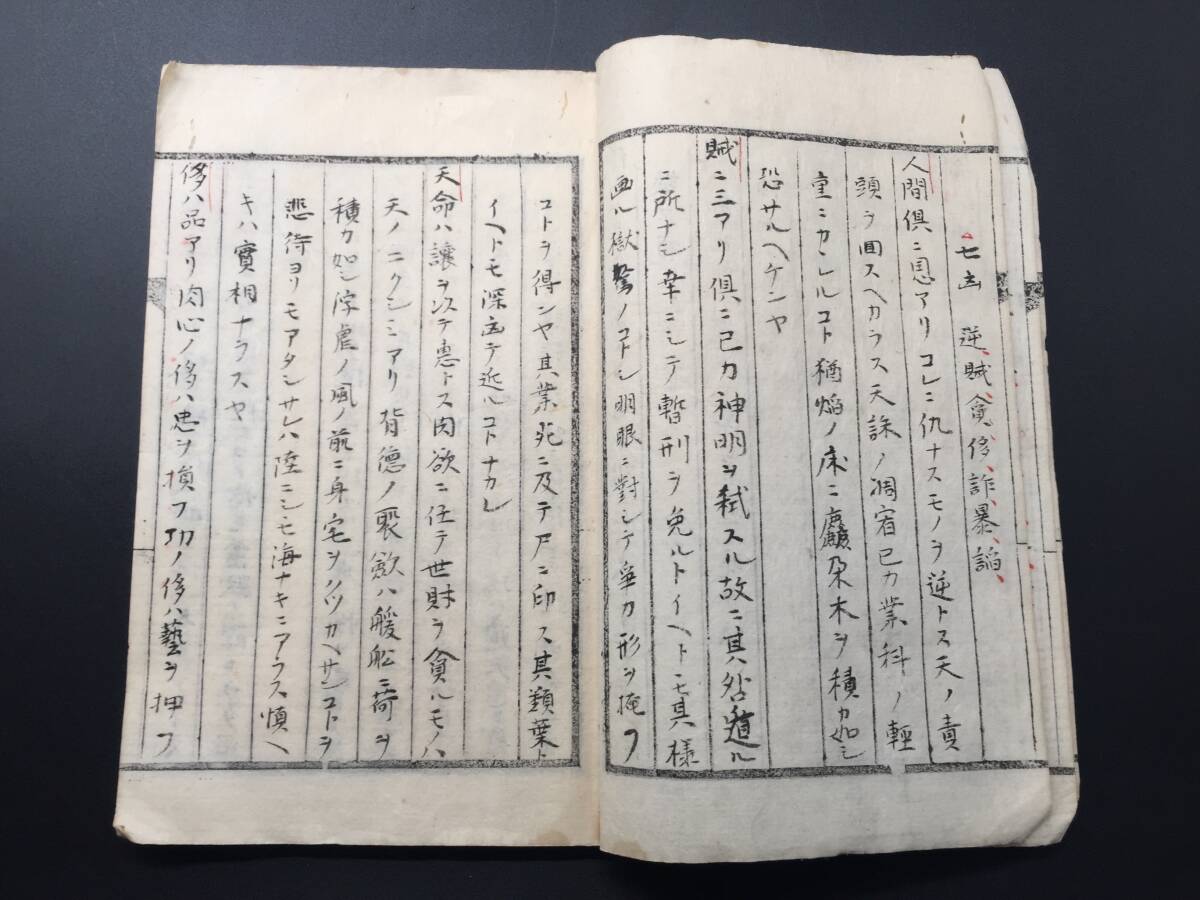 七凶 逆、賊、貪、侈、詐、暴、諂、
人間倶ニ恩アリコレニ仇ナスモノヲ逆トス天ノ責
頭ヲ回スヘカラス天誅ノ凋宿已カ業科ノ軽
重ニカヽレルコト猶焰ノ床ニ朶木ヲ積カ如シ
恐サルヘケンヤ
賊ニ三アリ倶ニ已カ神明ヲ弑スル故ニ其外遁ル
ニ所ナシ幸ニシテ暫刑ヲ免ルトイヘトモ其様
画ル獄ノコトシ明眼ニ對シテ毎カ形ヲ掩フ
コトヲ得ンヤ其業死ニ及テ尸ニ印ス其類葉ト
イヘトモ深凶テ近ルコトナカレ
天命ハ譲ヲ以テ恵トス肉欲ニ任テ世財ヲ貪ルモノハ
天ノニクシミアリ背徳ノ聚斂ハ艘舩ニ荷ヲ
積カ如シ浮虚ノ風ノ前ニ身宅ヲクツカヘサンコトヲ
悲待ヨリモアタシサレハ陸ニシモ海ナキニアラス慎ヘ
キハ實相ナラスヤ
侈ハ品アリ肉心ノ侈ハ忠ヲ損フ功ノ侈ハ藝ヲ押フ